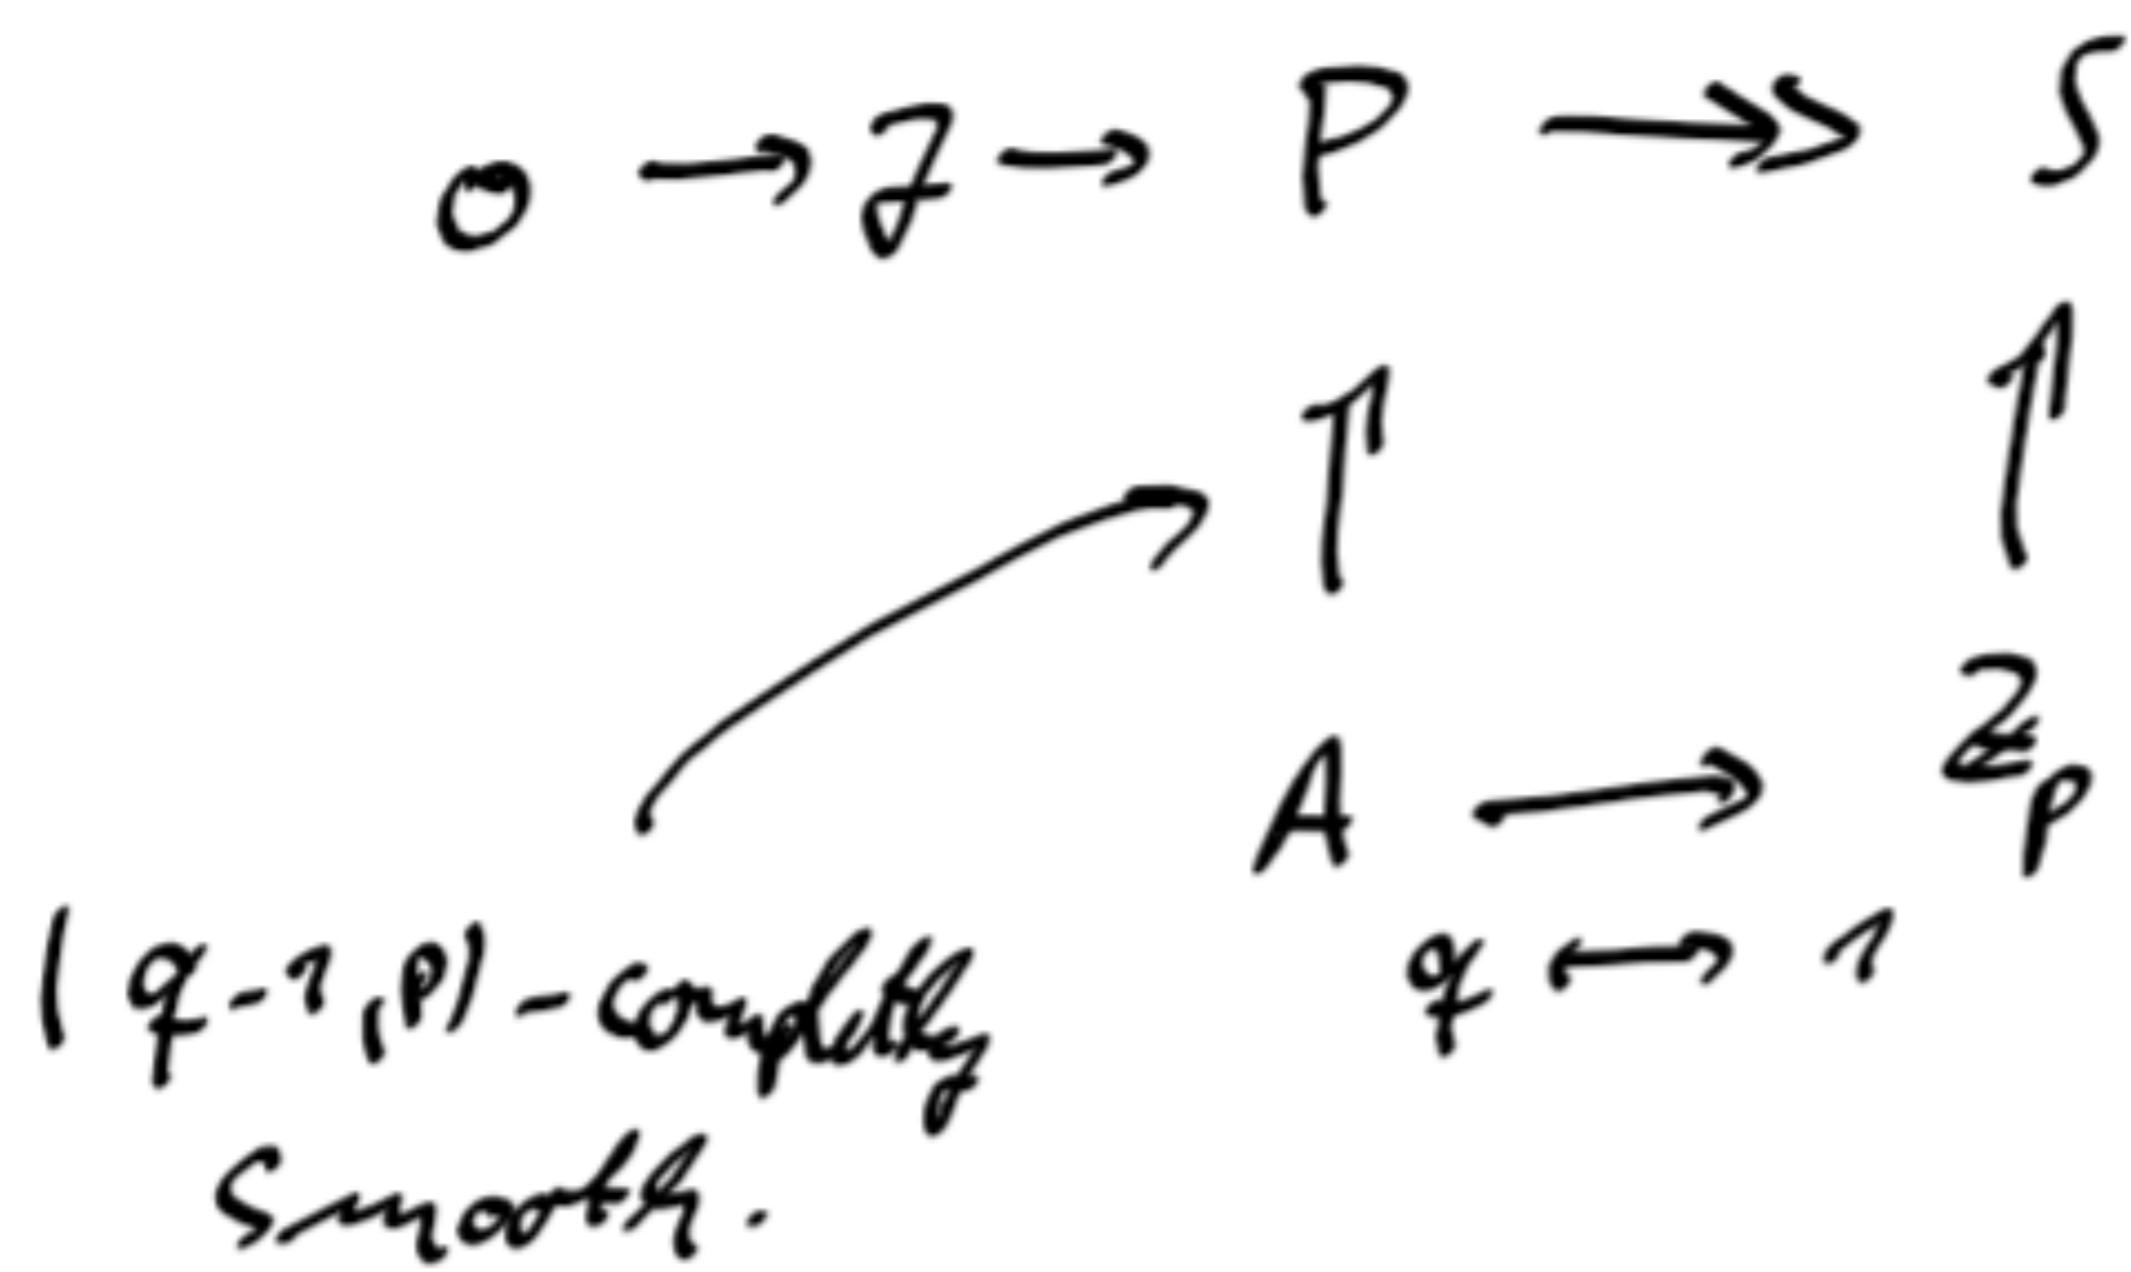 0 → J → P ↠ S
↑ ↑
A → ℤ_p
(q-1,p)-completly q ↔ 1
smooth.